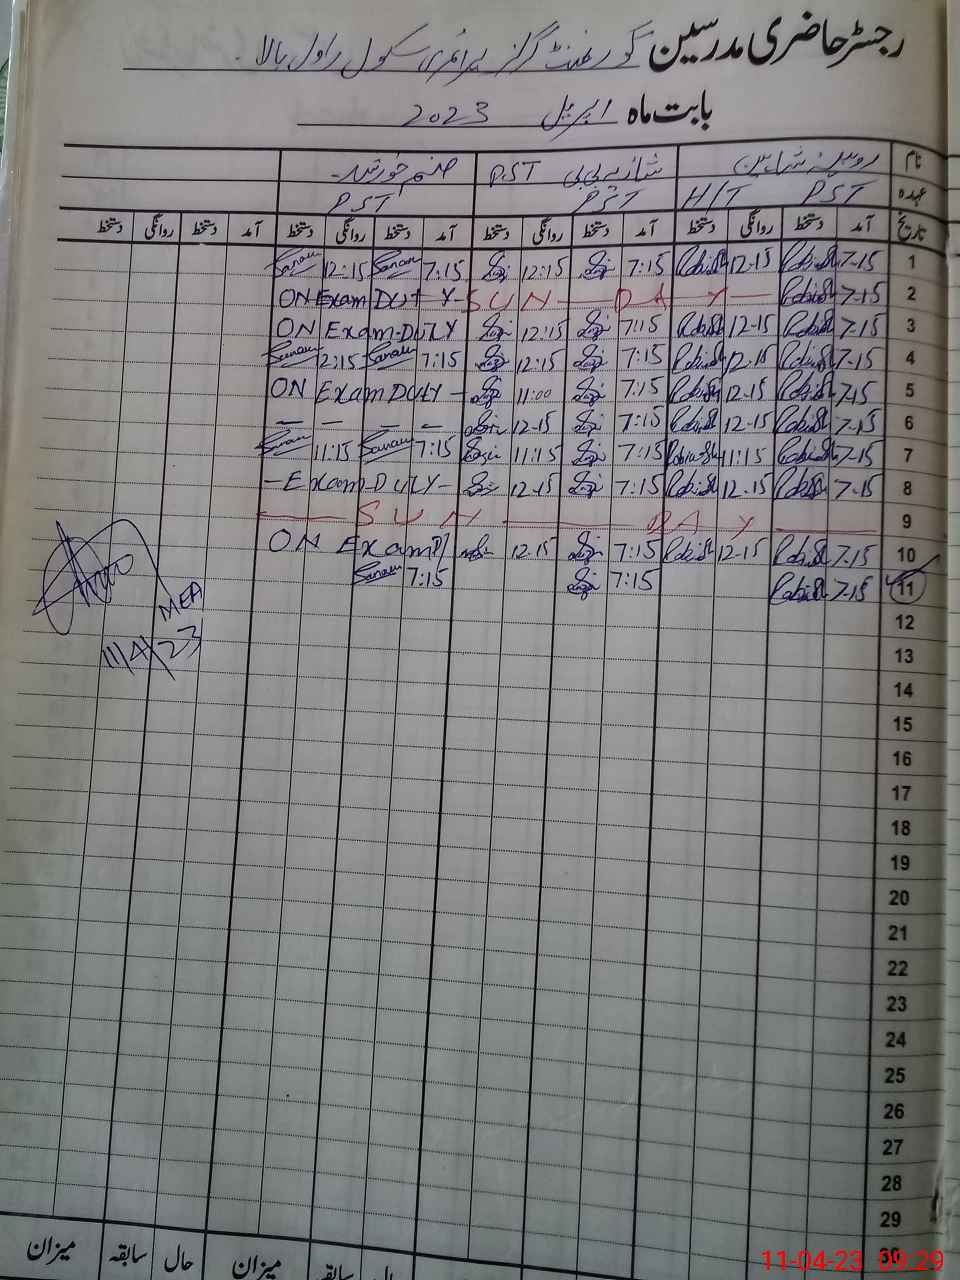 رجسٹر حاضری مدرسین گورنمنٹ گرلز پرائمری سکول راول بالا
بابت ماہ اپریل 2023
نام روبینہ شاہین شازیہ بی بی P.ST صنم خورشید
عہدہ PST H/T PST PST
تاریخ آمد دستخط روانگی دستخط آمد دستخط روانگی دستخط آمد دستخط روانگی دستخط آمد دستخط روانگی دستخط
1 7-15 12-15 7:15 12:15 7:15 Sanam 12:15 Sanam
2 7-15 SUN DAY ON Exam DUTY
3 7-15 12-15 7:15 12:15 ON Exam DUTY
4 7-15 12-15 7:15 12:15 7:15 Sanam 12:15 Sanam
5 7-15 12-15 7:15 11:00 ON Exam DUTY
6 7-15 12-15 7:15 12-15 — — — —
7 7-15 11:15 7:15 11:15 7:15 Sanam 11:15 Sanam
8 7-15 12-15 7:15 12-15 -Exam DUTY-
9 SUN DAY
10 7-15 12-15 7:15 12-15 ON Exam D
11 7-15 7:15 7:15 Sanam
MEA
11/4/23
12
13
14
15
16
17
18
19
20
21
22
23
24
25
26
27
28
29
30
حال سابقہ میزان حال سابقہ میزان
11-04-23 09:29